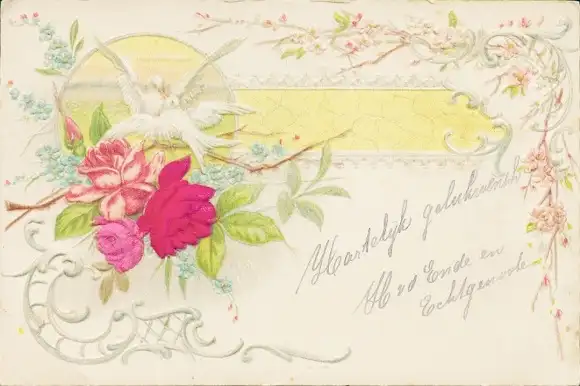 Hartelijk gelukwensch
H v d Ende en
Echtgenoote